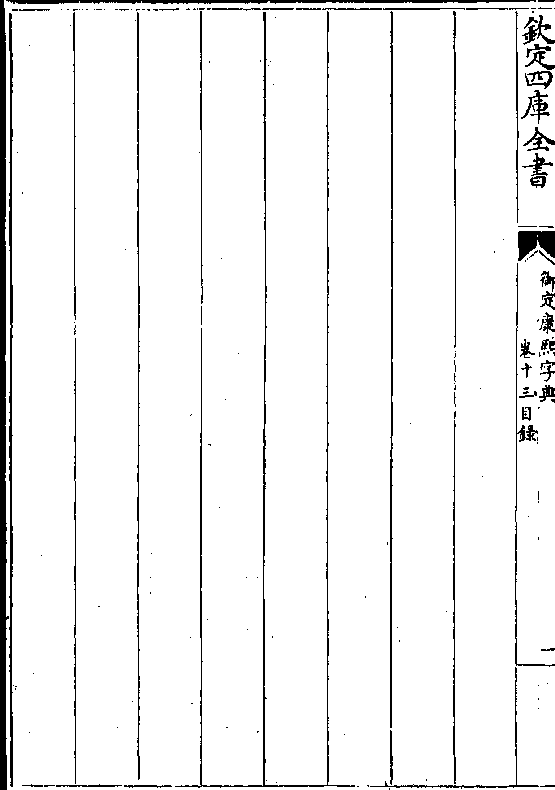 欽定四庫全書
御定康熙字典
卷十三目錄
一